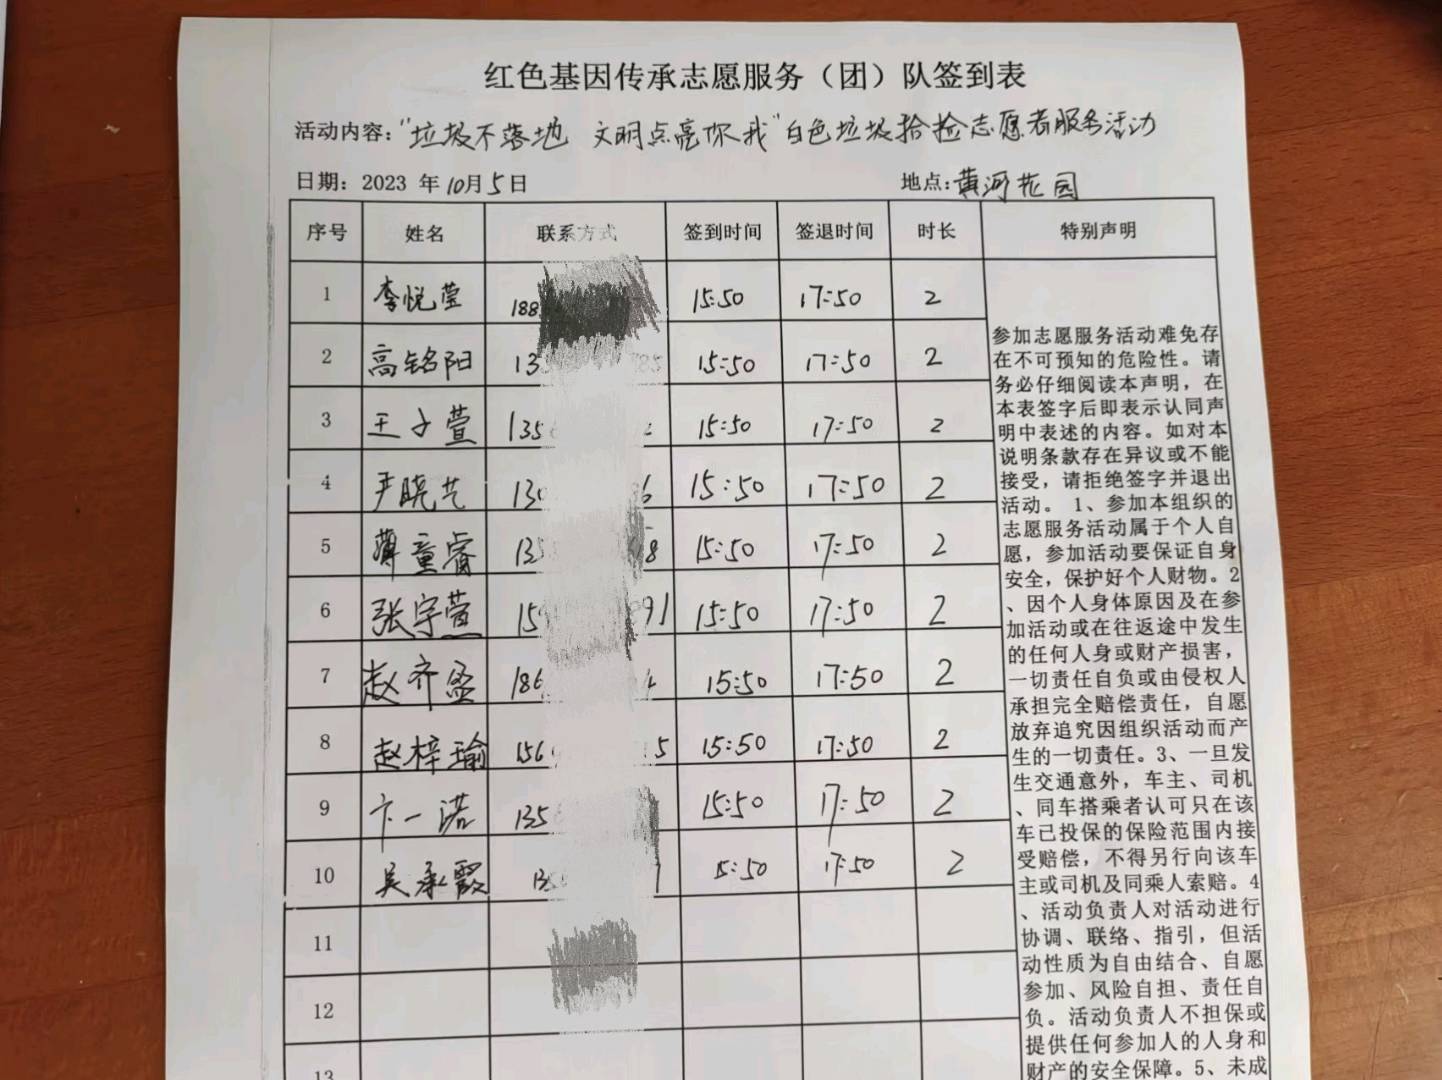 红色基因传承志愿服务（团）队签到表
活动内容："垃圾不落地 文明点亮你我"白色垃圾拾捡志愿者服务活动
日期：2023 年10月5日 地点:黄河花园
序号 姓名 联系方式 签到时间 签退时间 时长 特别声明
1 李悦莹 188 15:50 17:50 2
2 高铭阳 13 85 15:50 17:50 2
3 王子萱 135 15:50 17:50 2
4 严晓艺 130 6 15:50 17:50 2
5 薄童睿 135 8 15:50 17:50 2
6 张宇萱 15 91 15:50 17:50 2
7 赵齐孟 186 15:50 17:50 2
8 赵梓瑜 156 5 15:50 17:50 2
9 卞一诺 135 15:50 17:50 2
10 吴承霞 135 15:50 17:50 2
11
12
13
参加志愿服务活动难免存
在不可预知的危险性。请
务必仔细阅读本声明，在
本表签字后即表示认同声
明中表述的内容。如对本
说明条款存在异议或不能
接受，请拒绝签字并退出
活动。 1、参加本组织的
志愿服务活动属于个人自
愿，参加活动要保证自身
安全，保护好个人财物。2
、因个人身体原因及在参
加活动或在往返途中发生
的任何人身或财产损害，
一切责任自负或由侵权人
承担完全赔偿责任，自愿
放弃追究因组织活动而产
生的一切责任。3、一旦发
生交通意外，车主、司机
、同车搭乘者认可只在该
车已投保的保险范围内接
受赔偿，不得另行向该车
主或司机及同乘人索赔。4
、活动负责人对活动进行
协调、联络、指引，但活
动性质为自由结合、自愿
参加、风险自担、责任自
负。活动负责人不担保或
提供任何参加人的人身和
财产的安全保障。5、未成